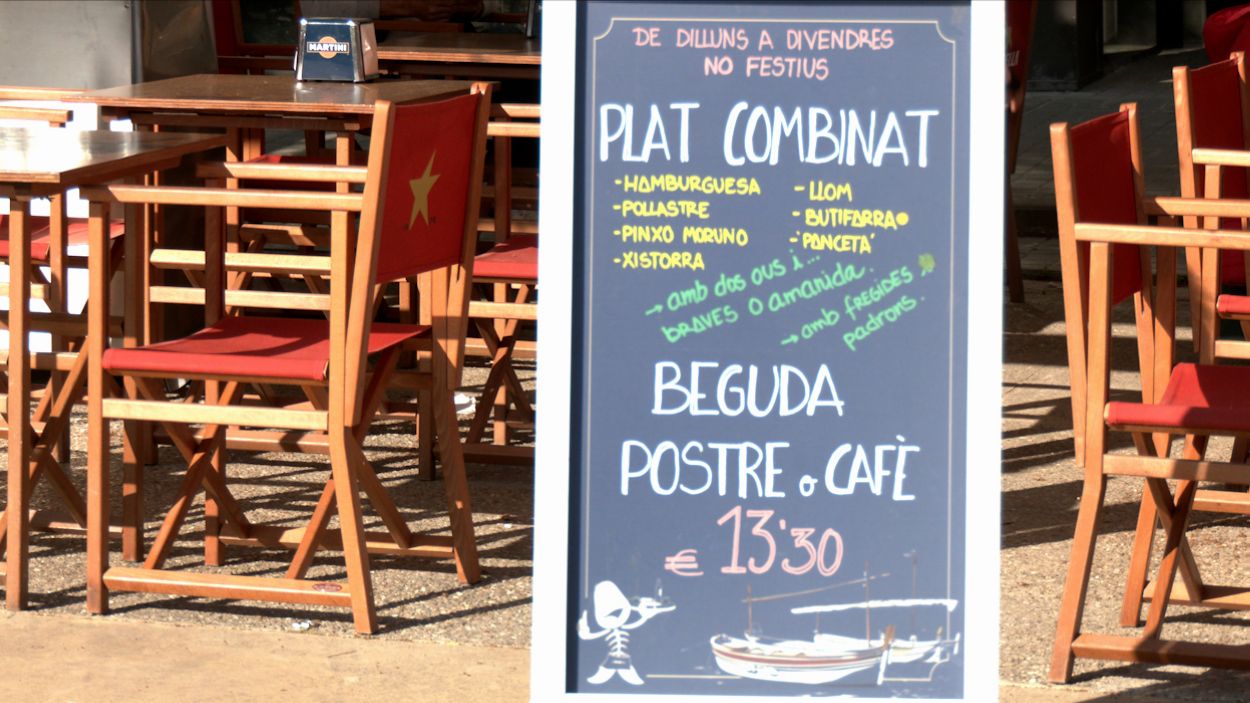 MARTINI
DE DILLUNS A DIVENDRES
NO FESTIUS
PLAT COMBINAT
-HAMBURGUESA
-POLLASTRE
-PINXO MORUNO
-XISTORRA
-LLOM
-BUTIFARRA
-"PANCETA"
→ amb dos ous i...
BRAVES O amanida.
→ amb FREGIDES
padrons.
BEGUDA
POSTRE o CAFÈ
€ 13'30